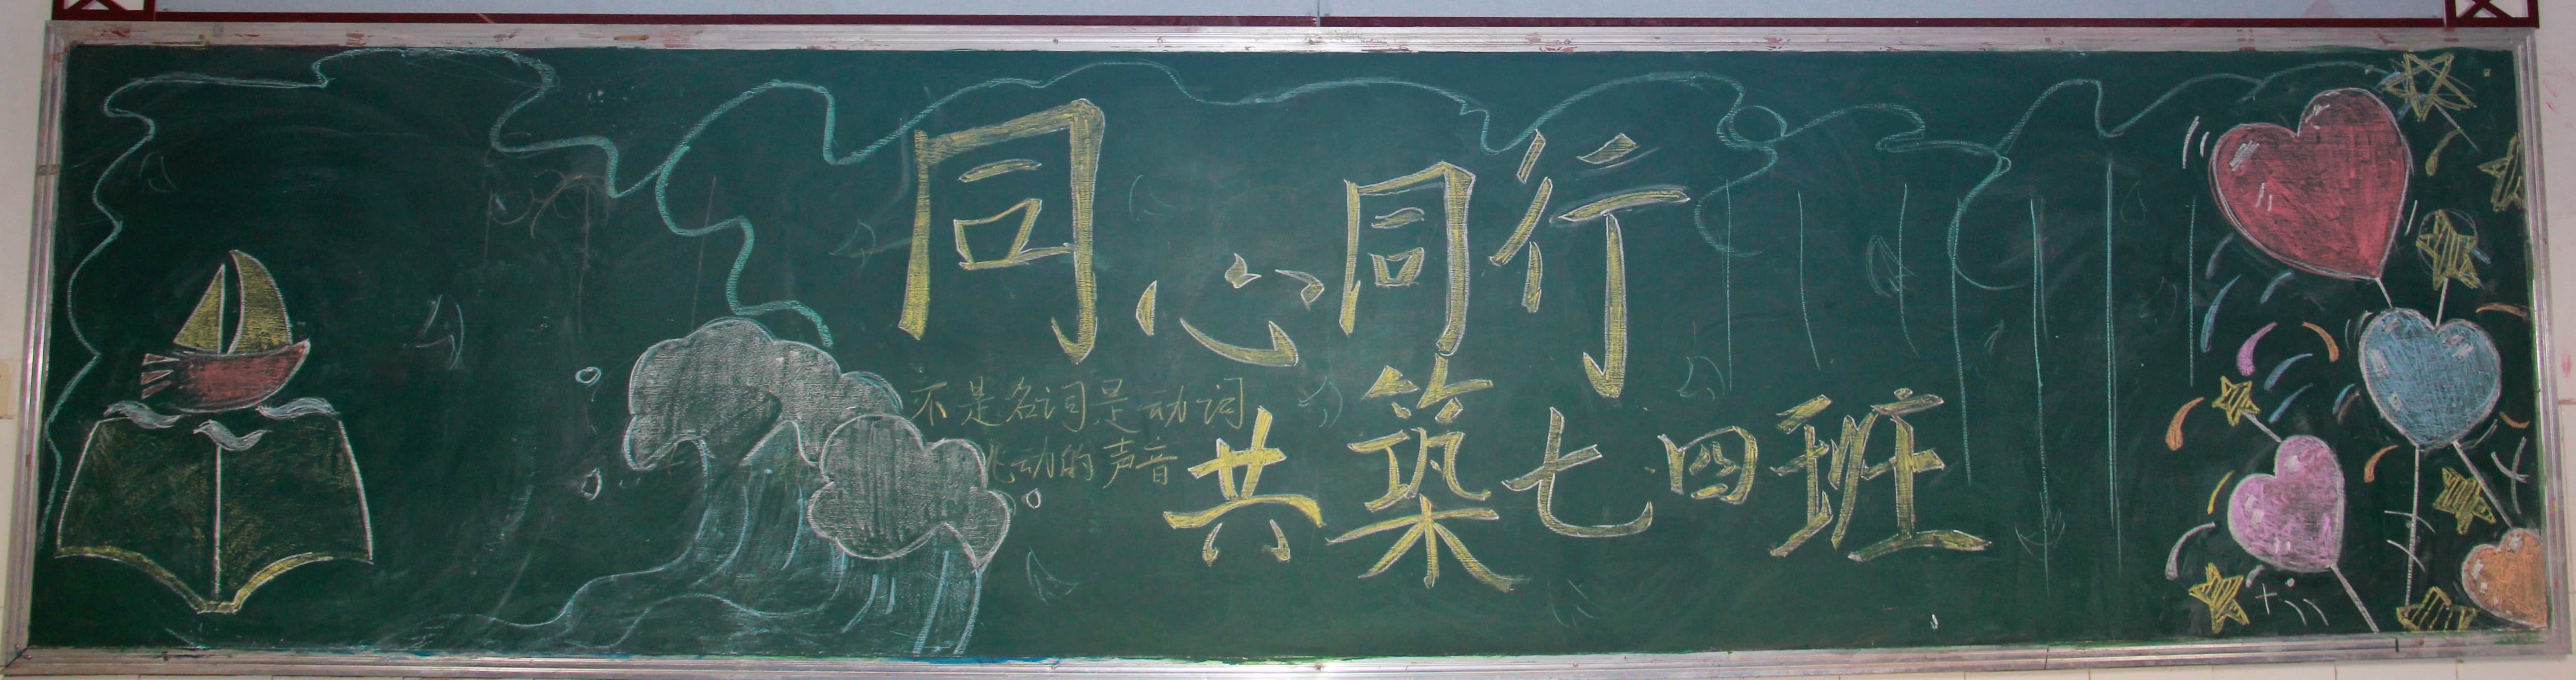 同心同行
不是名词是动词
动的声音
共築七四班